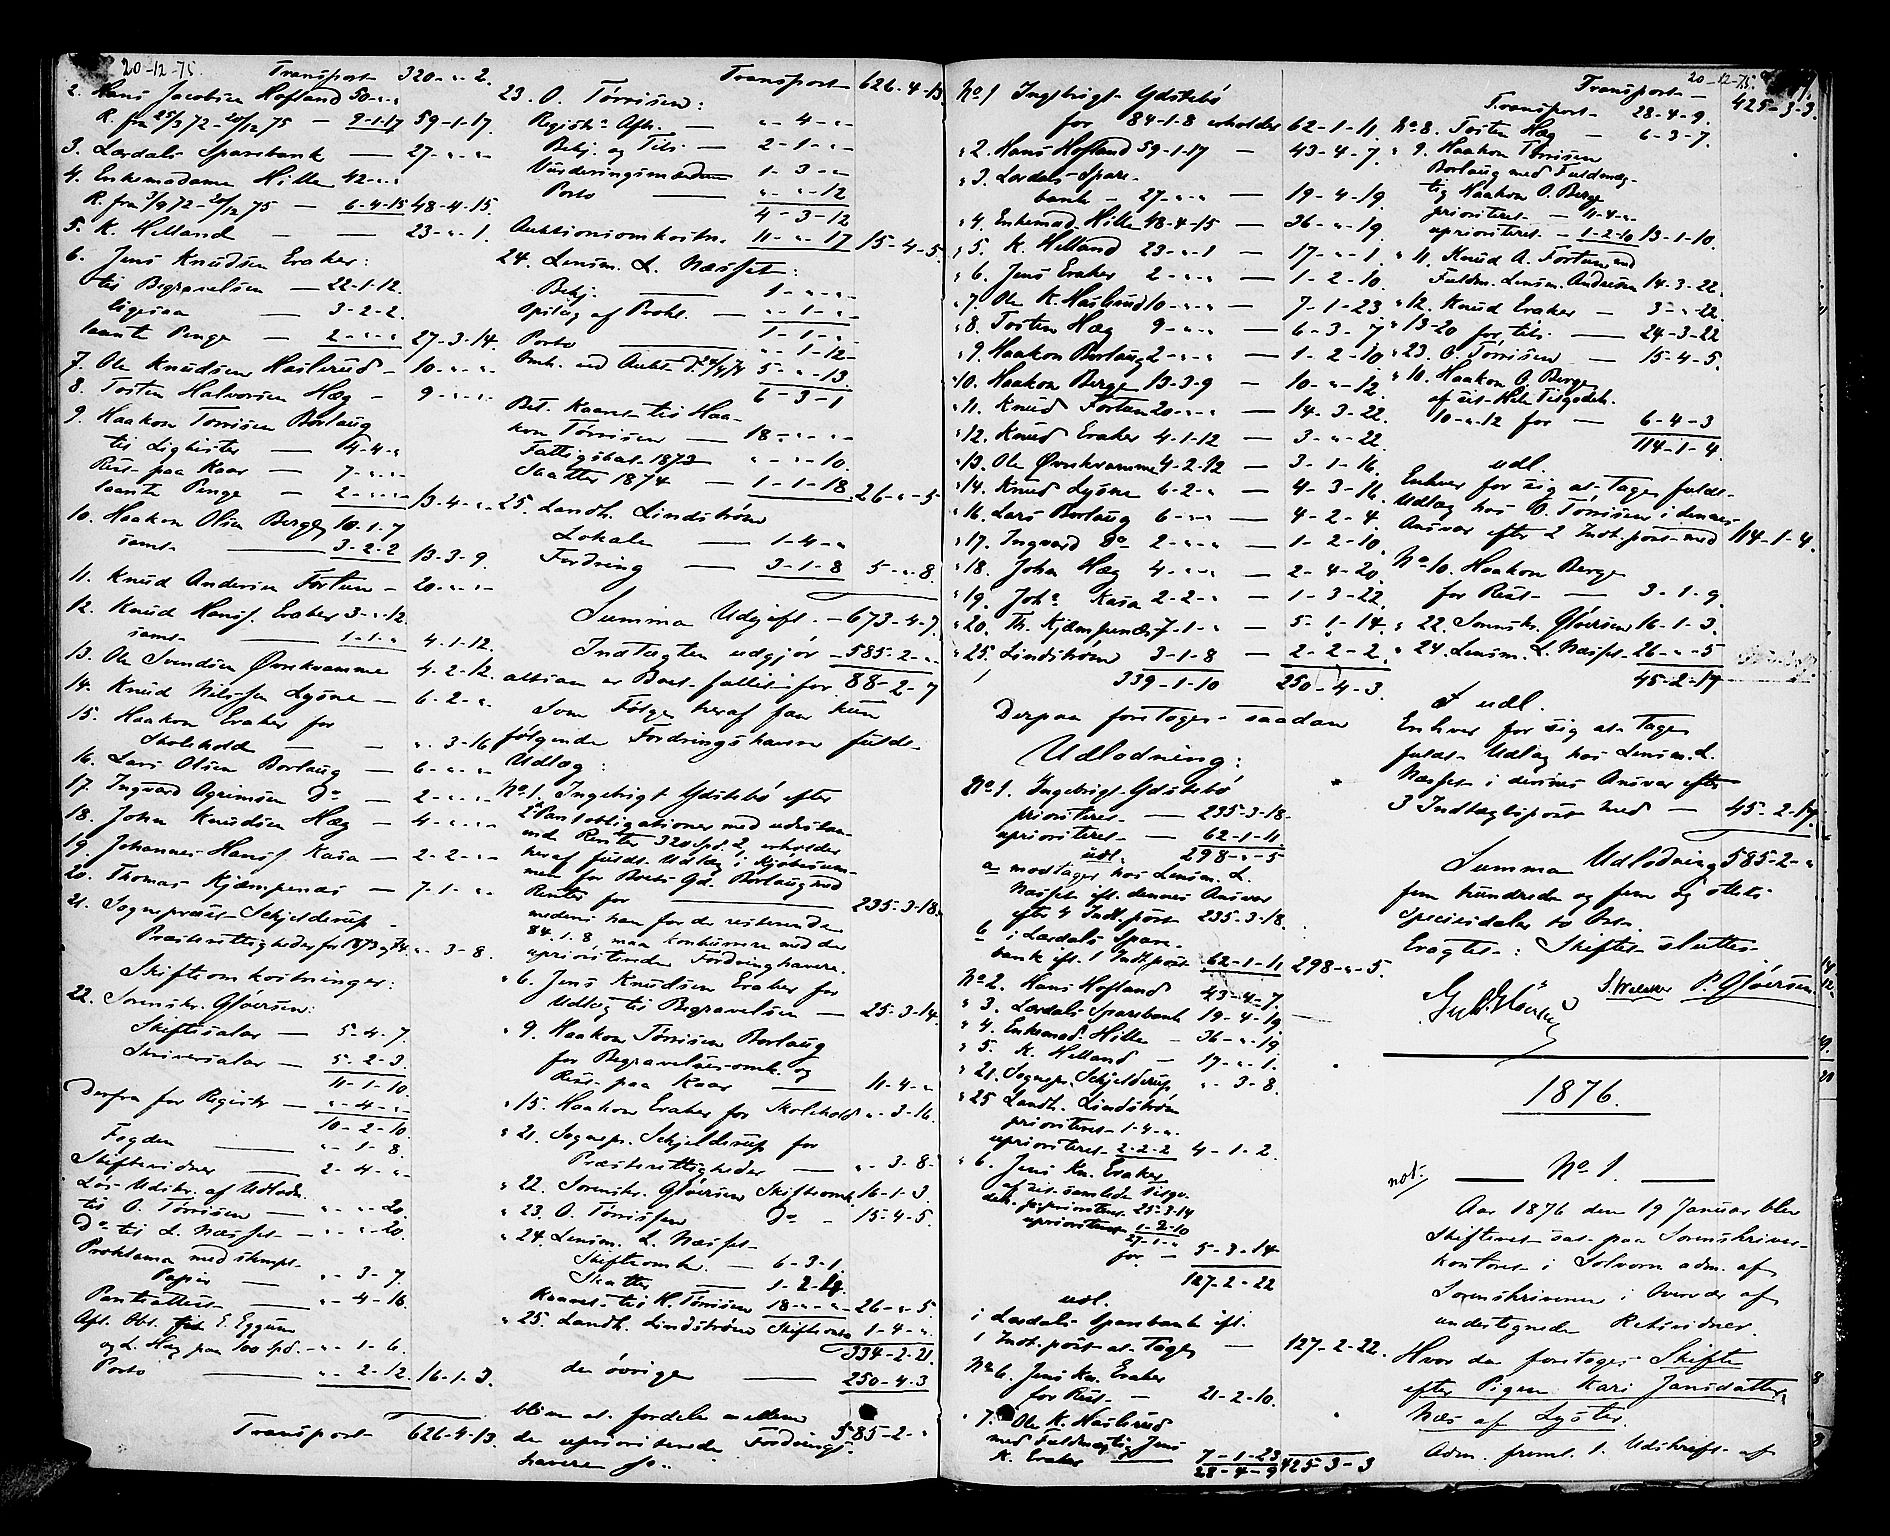 20-12-75.
Transport 320-"-2.
2. Hans Jacobsen Hofland 50-"-"
R. fra 25/3 72 - 20/12 75 — 9-1-17 59-1-17.
3. Lærdals Sparebank — 27-"-"-
4. Enkemadame Hille 42-"-"
R. fra 3/9 72 - 20/12 75 — 6-4-15 48-4-15.
5. K. Helland — — 23-"-1.
6. Jens Knudsen Eraker:
til Begravelsen — 22-1-12.
ligesaa — 3-2-2.
laante Penge — 2-"-"- 27-3-14.
7. Ole Knudsen Haslerud — 10-"-"-
8. Tosten Halvorsen Hæg — 9-"-"-
9. Haakon Tørrisen Borlaug
til Ligkister — 4-4-"
Rest paa Kaar — 7-"-"-
laante Penge — 2-"-"- 13-4-"-
10. Haakon Olsen Berge 10-1-7
samt — 3-2-2 13-3-9.
11. Knud Andersen Fortun — 20-"-"-
12. Knud Hansf. Eraker 3-"-12.
samt — 1-1-" 4-1-12.
13. Ole Svendsen Øvrekvamme 4-2-12.
14. Knud Nilssen Lysne — 6-2-"-
15. Haakon Eraker for
Skolehold — "-3-16
16. Lars Olsen Borlaug — 6-"-"-
17. Ingvard Ogrimsen Do — 2-"-"-
18. John Knudsen Hæg — 4-"-"-
19. Johannes Hansf. Kasa — 2-2-"-
20. Thomas Kjæmpenæs — 7-1-"-
21. Sognepræst Schjelderup
Præsterettigheder for 1873 og 74. "-3-8.
Skifteomkostninger:
22. Sorenskr. Gløersen:
Skiftesalar — 5-4-7
Skriversalar — 5-2-3.
11-1-10.
Derfra for Registr — "-4-"-
10-2-10.
Fogden — "-1-8.
Skiftevidner — 2-4-"-
Løs. Udskr. af Udlodn.
til O. Tørrisen — "-"-20.
Do til L. Næsset — "-"-20.
Proklama med stempl.
Papir — "-3-7.
Panteattest — "-4-16.
Aft. Obl. fra E. Eggum
og L. Hæg paa 100 spd. — "-1-6.
Porto — "-2-12. 16-1-3.
Transport 626-4-13.
Transport 626-4-13.
23. O. Tørrisen:
Registr. Aft. — "-4-"-
Bekj. og Tils. — 2-1-"-
Vurderingsmænd 1-3-"-
Porto — "-"-12
4-3-12.
Auktionsomkostn. 11-"-17 15-4-5.
24. Lensm. L. Næsset:
Bekj. — 1-"-"-
Opslag af Prokl. — "-1-"-
1-1-"-
Porto — "-1-12-
Omk. ved Aukt. 5-"-13
6-3-1
Bet. Kaaret til Haa-
kon Tørrisen — 18-"-"-
Fattigskat 1873 "-"-10.
Skatter 1874 — 1-1-18 26-"-5
25. Landh. Lindstrøm
Lokale — 1-4-"
Fordring — 3-1-8 5-"-8.
Summa Udgift — 673-4-7.
Indtægten udgjør — 585-2-"-
altsaa er Boet fallit for 88-2-7
Som Følge heraf faar kun
følgende Fordringshavere fuldt
Udlæg:
No. 1. Ingebrigt Ydstebø efter
2 Pantobligationer med udestaa-
ende Renter 320 Spd. 2, erholder
heraf fuldt Udlæg i Kjøbesum-
men for Boets Gd. Borlaug med
Renter for — 235-3-18.
medens han for de resterende
84.1.8 maa konkurrere med de
uprioriterede Fordringshavere.
" 6. Jens Knudsen Eraker for
Udlæg til Begravelsen — 25-3-14.
" 9. Haakon Tørrisen Borlaug
for Begravelsesomk. og
Rest paa Kaar — 11-4-"-
" 15. Haakon Eraker for Skolehold "-3-16.
" 21. Sognepr. Schjelderup for
Præsterettigheder — "-3-8-
" 22. Sorenskr. Gløersen Skifteomk. 16-1-3.
" 23. O. Tørrissen Do — 15-4-5.
" 24. Lensm. L. Næsset
Skifteomk. — 6-3-1.
Skatter — 1-2-4.
Kaaret til H. Tørrisen 18-"-"- 26-"-5
" 25. Landh. Lindstrøm Skifteomk. 1-4-"-
334-2-21.
den øvrige — 250-4-3
bliver at fordele mellem 585-2-"
de uprioriterede Fordrings-
havere
No. 1 Ingebrigt Ydstebø
for 84-1-8 erholder 62-1-11.
" 2. Hans Hofland 59-1-17 — 43-4-7.
" 3. Lærdals Spare-
bank — 27-"-" — 19-4-19.
" 4. Enkemad. Hille 48-4-15 — 36-"-19.
" 5. K. Helland 23-"-1 — 17-"-1.
" 6. Jens Eraker 2-"-"- — 1-2-10.
" 7. Ole K. Haslerud 10-"-"- — 7-1-23.
" 8. Tosten Hæg 9-"-"- — 6-3-7
" 9. Haakon Borlaug 2-"-"- — 1-2-10
" 10. Haakon Berge 13-3-9 — 10-"-12.
" 11. Knud Fortun 20-"-"- — 14-3-22.
" 12. Knud Eraker 4-1-12 — 3-"-22
" 13. Ole Øvrekvamme 4-2-12 — 3-1-16.
" 14. Knud Lysne 6-2-" — 4-3-16.
" 16. Lars Borlaug 6-"-" — 4-2-4.
" 17. Ingvard Do 2-"-"- — 1-2-10.
" 18. John Hæg 4-"-"- — 2-4-20.
" 19. Johs Kasa 2-2-" — 1-3-22.
" 20. Th. Kjæmpenæs 7-1-" — 5-1-14.
" 25. Lindstrøm 3-1-8 — 2-2-2.
339-1-10 250-4-3.
Derpaa foretoges saadan
Udlodning:
No. 1. Ingebrigt Ydstebø
prioriteret — 235-3-18.
uprioriteret — 62-1-11.
udl. 298-"-5
a modtages hos Lensm. L.
Næsset ift. dennes Ansvar
efter 4 Indt.post 235-3-18.
b i Lærdals Spare-
bank ift. 1 Indt.post 62-1-11 298-"-5.
No. 2. Hans Hofland 43-4-7.
" 3. Lærdals Sparebank 19-4-19
" 4. Enkemad. Hille — 36-"-19
" 5. K. Helland — 17-"-1.
" 21. Sognepr. Schjelderup "-3-8.
" 25 Landh. Lindstrøm
prioriteret 1-4-"-
uprioriteret 2-2-2 4-1-2.
" 6. Jens Kn. Eraker
af sit samlede Tilgo-
deh. prioriteret 25-3-14
uprioriteret 1-2-10
27-1-"
for — 5-3-14
127-2-22
udl.
i Lærdals Sparebank ift.
1 Indt.post at tage — 127-2-22.
No. 6. Jens Kn. Eraker
for Rest — 21-2-10.
" 7. Ole K. Haslerud
med Fuldmægtig Jens
K. Eraker — 7-1-23
28-4-9 425-3-3
20-12-75.
Transport — 425-3-3.
Transport 28-4-9.
No. 8. Tosten Hæg — 6-3-7.
" 9. Haakon Tørrisen
Borlaug med Fuldmæg-
tig Haakon O. Berge
prioriteret — 11-4-"-
uprioriteret — 1-2-10 13-1-10.
" 11. Knud A. Fortun ved
Fuldm. Lensm. Andresen 14-3-22.
" 12. Knud Eraker — 3-"-22.
" 13-20 for tils. — 24-3-22
" 23. O. Tørrisen — 15-4-5.
" 10. Haakon O. Berge
af sit hele Tilgodeh.
10-"-12 for — 6-4-3
114-1-4.
udl.
Enhver for sig at tage fuldt
Udlæg hos O. Tørrisen i dennes
Ansvar efter 2 Indt.post med 114-1-4.
No. 10. Haakon Berge
for Rest — 3-1-9.
" 22. Sorenskr. Gløersen 16-1-3.
" 24. Lensm. L. Næsset 26-"-5
45-2-17
udl.
Enhver for sig at tage
fuldt Udlæg hos Lensm. L.
Næsset i dennes Ansvar efter
3 Indtægtspost med — 45-2-17.
Summa Udlodning 585-2-"
fem hundrede og fem og otteti
Speciesdaler to Ort.
Eragtet: Skiftet sluttes.
P. Gløersen
1876.
not.
No. 1.
Aar 1876 den 19 Januar blev
Skifteret sat paa Sorenskriver-
kontoret i Solvorn adm. af
Sorenskriveren i Overvær af
undertegnede Retsvidner.
Hvor da foretoges Skifte
efter Pigen Kari Jansdatter
Næs af Lyster.
Adm. freml. 1. Udskrift af